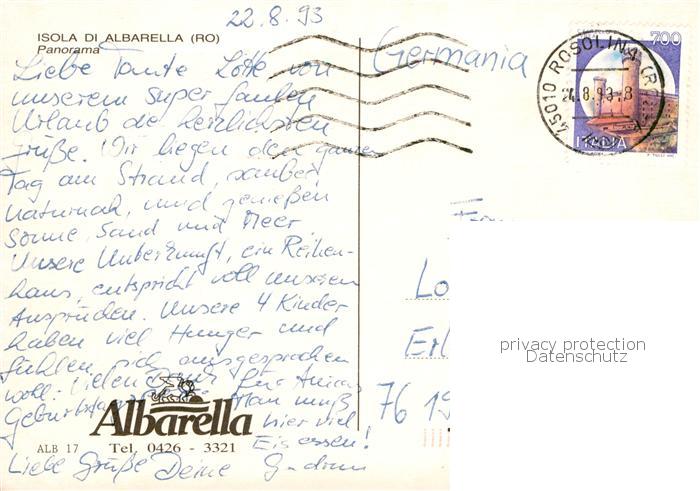 22.8.93
ISOLA DI ALBARELLA (RO)
Panorama
Liebe Tante Lotte von
unserem super faulen
Urlaub die herzlichsten
Grüße. Wir liegen den ganzen
Tag am Strand, sauber,
naturnah, und genießen
Sonne, Sand und Meer.
Unsere Unterkunft, ein Reihen-
haus, entspricht voll unseren
Ansprüchen. Unsere 4 Kinder
haben viel Hunger und
fühlen sich ausgesprochen
wohl. Vielen Dank für
Man muß
hier viel
Eis essen!
Albarella
ALB 17 Tel. 0426 - 3321
Liebe Grüße Deine Gudrun
Germania
700
45010 ROSOLINA (RO)
8.93
ITALIA
Lo
Erl
76 19
privacy protection
Datenschutz